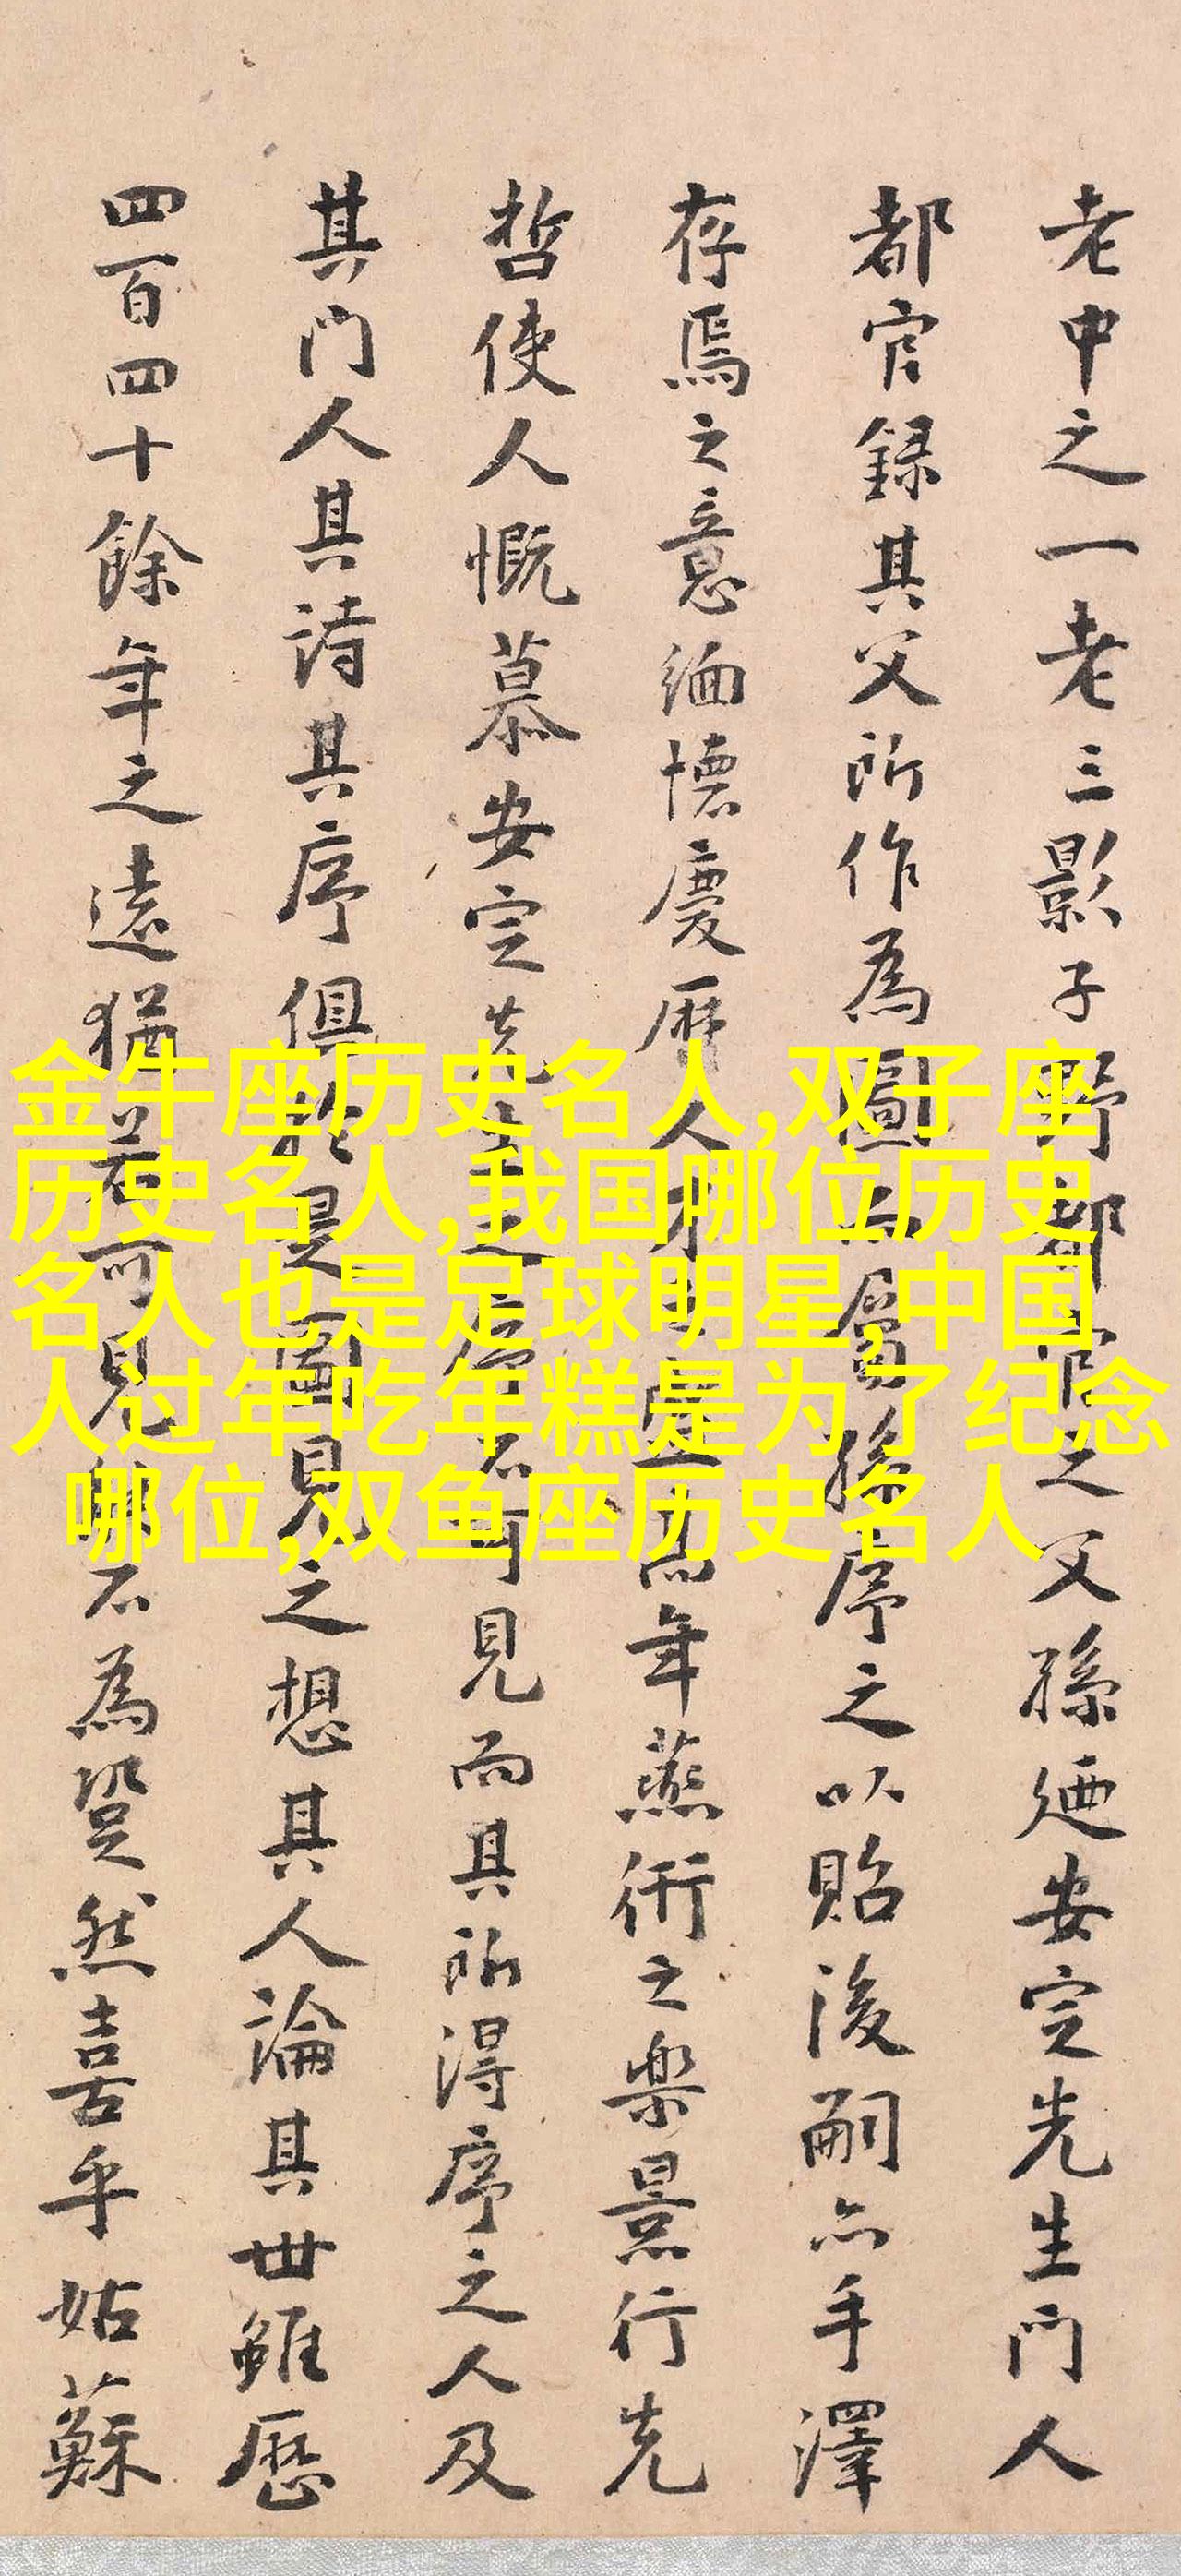 老中之一老三影子野都官之父孫廼安定先生門人
都官録其父所作為圖而屬孫序之以貽後嗣亦手澤
存焉之意緬懷慶曆人才之盛高年燕衎之樂景行先
哲使人慨慕安定先生之序不可見而其所得序之人及
其門人其詩其序俱於是圖見之想其人論其世雖歷
四百四十餘年之遠猶若可見能不為跫然喜乎姑蘇
金牛座历史名人,双子座
历史名人,我国哪位历史
名人也是足球明星,中国
人过年吃年糕是为了纪念
哪位,双鱼座历史名人